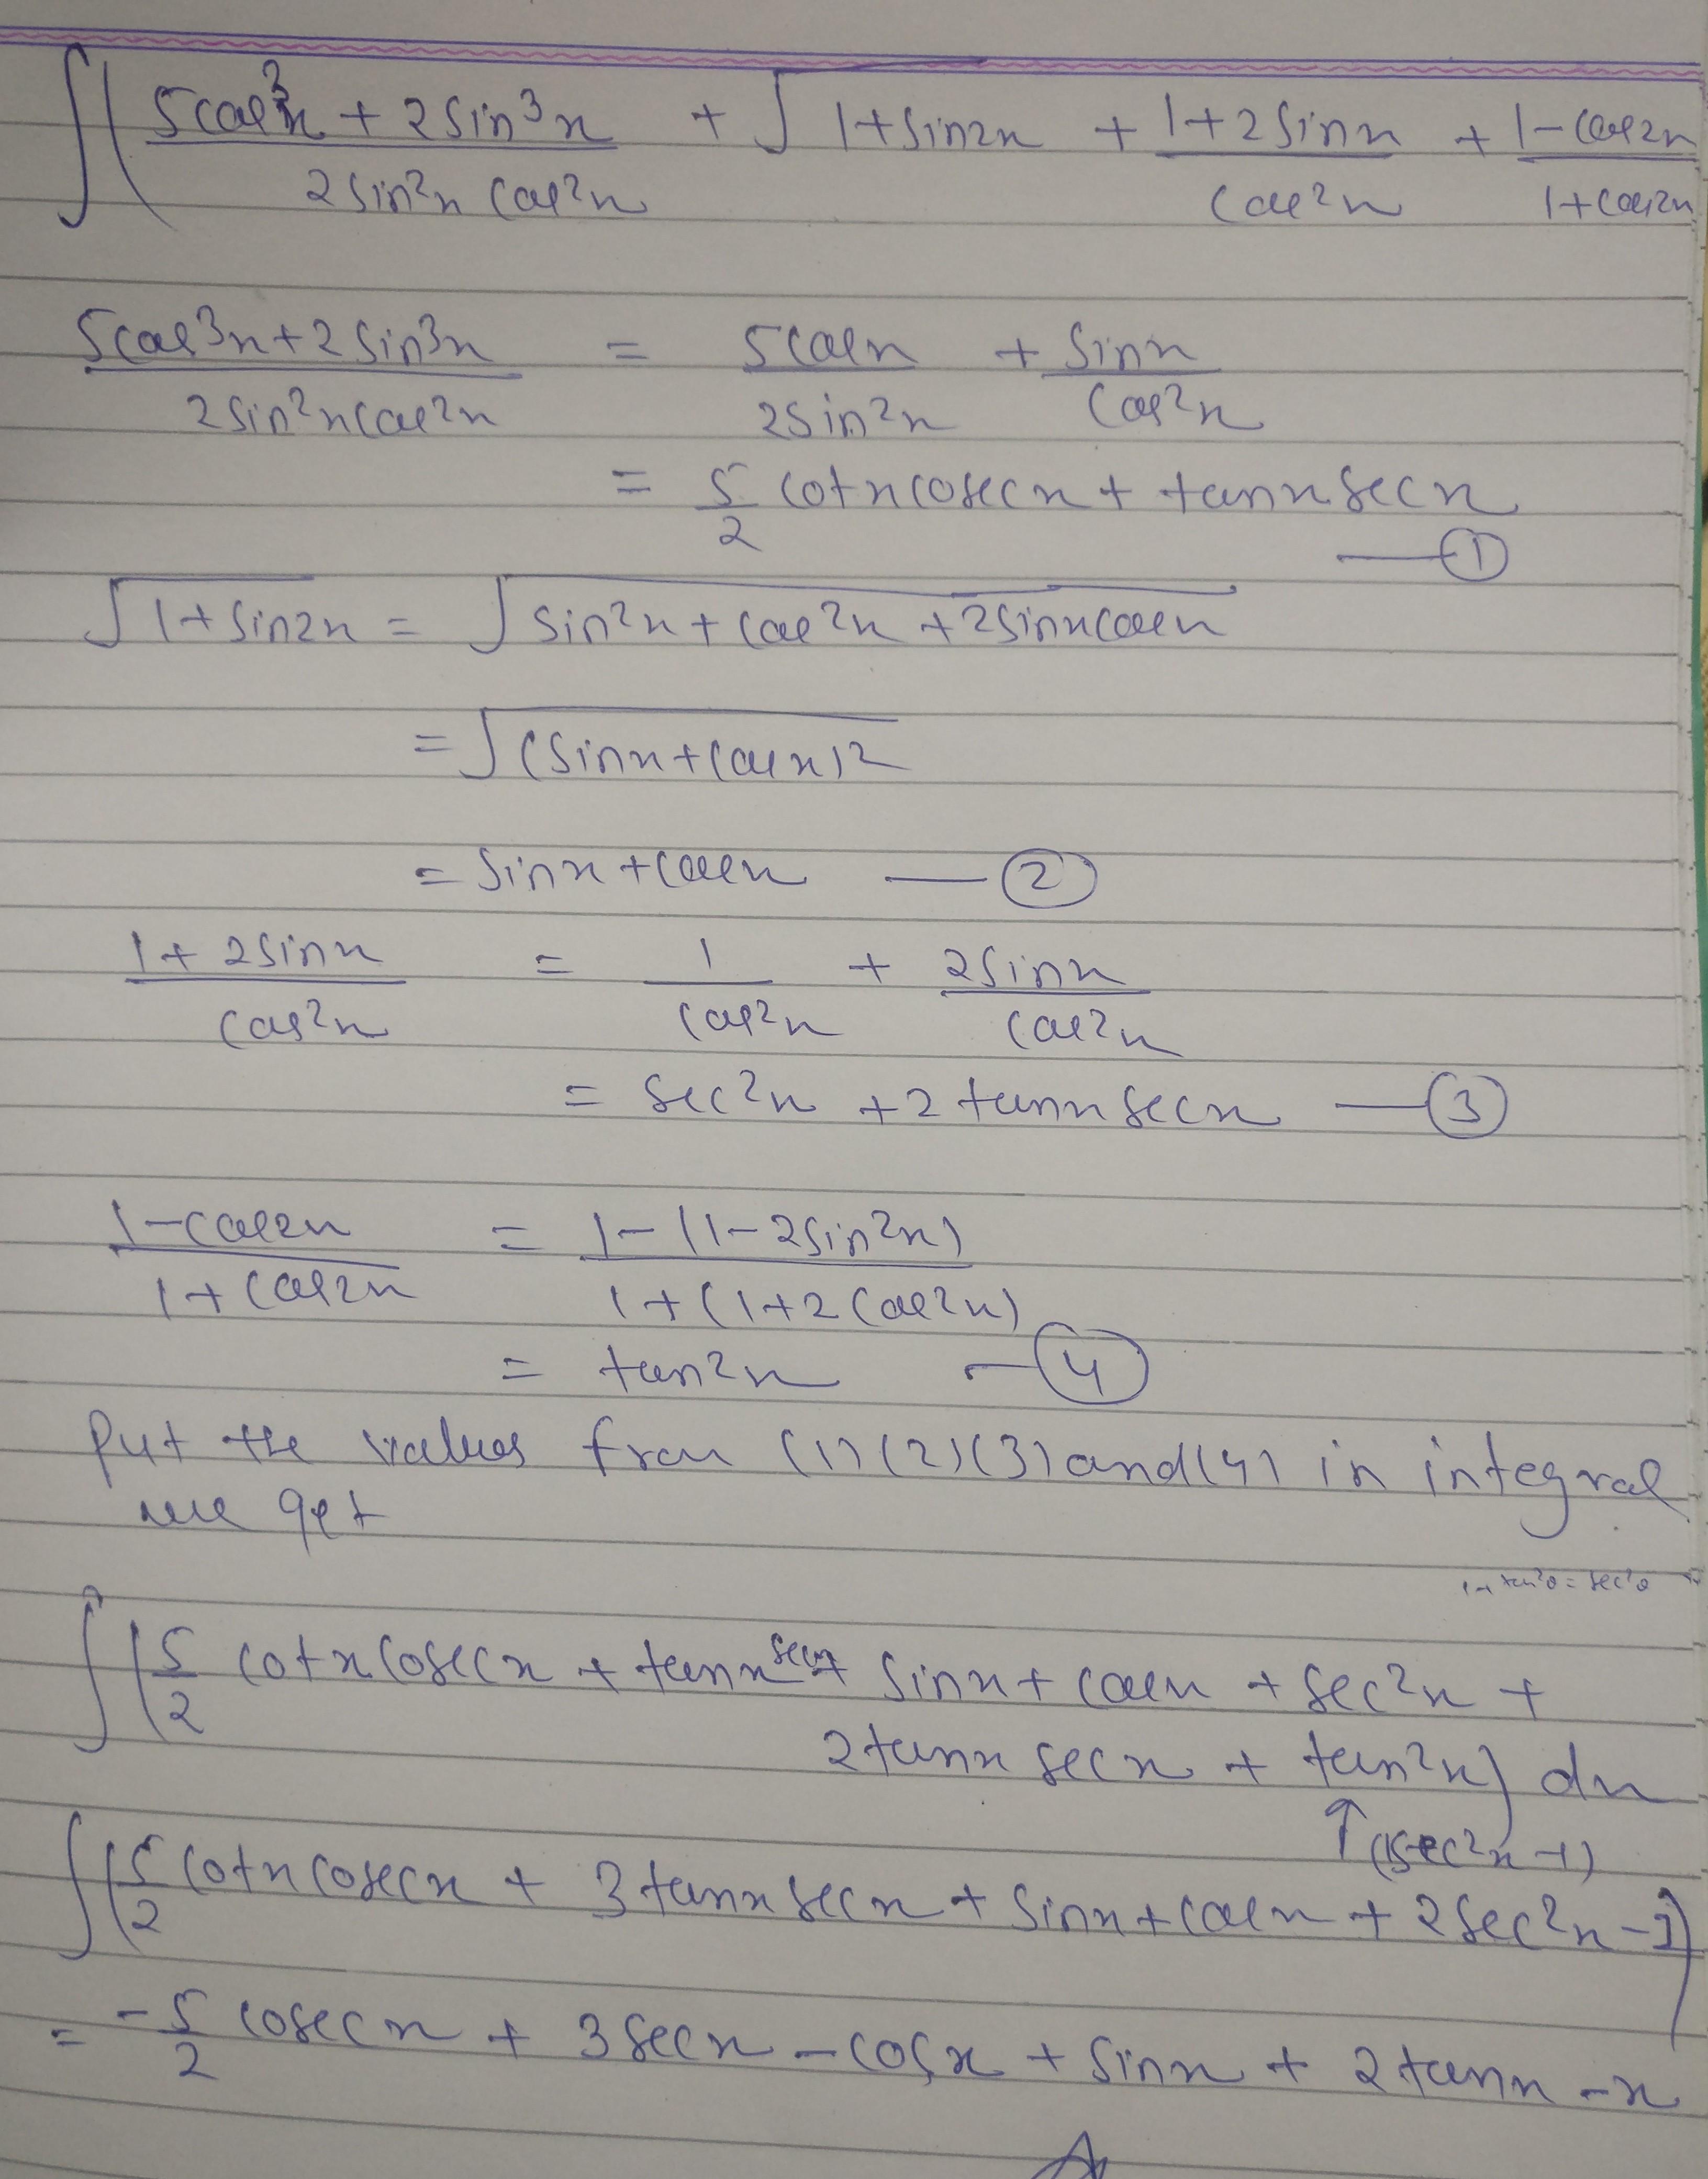 ∫( (5cos³x + 2sin³x)/(2sin²x cos²x) + √(1+sin2x) + (1+2sinx)/(cos²x) + (1-cos2x)/(1+cos2x)
(5cos³x+2sin³x)/(2sin²x cos²x) = 5cosx/(2sin²x) + sinx/(cos²x)
= 5/2 cotx cosecx + tanx secx
—①
√(1+sin2x) = √(sin²x+cos²x+2sinxcosx)
= √((sinx+cosx)²)
= sinx+cosx —②
(1+2sinx)/(cos²x) = 1/(cos²x) + 2sinx/(cos²x)
= sec²x +2tanx secx —③
(1-cos2x)/(1+cos2x) = (1-(1-2sin²x))/(1+(1+2cos²x))
= tan²x —④
Put the values from (1)(2)(3)and(4) in integral
we get
1+tan²θ=sec²θ
∫(5/2 cotx cosecx + tanx secx + sinx+cosx+sec²x+
2tanx secx + tan²x) dx
↑(sec²x-1)
∫(5/2 cotx cosecx + 3tanx secx + sinx+cosx+2sec²x-1)
= -5/2 cosecx + 3secx - cosx + sinx + 2tanx -x